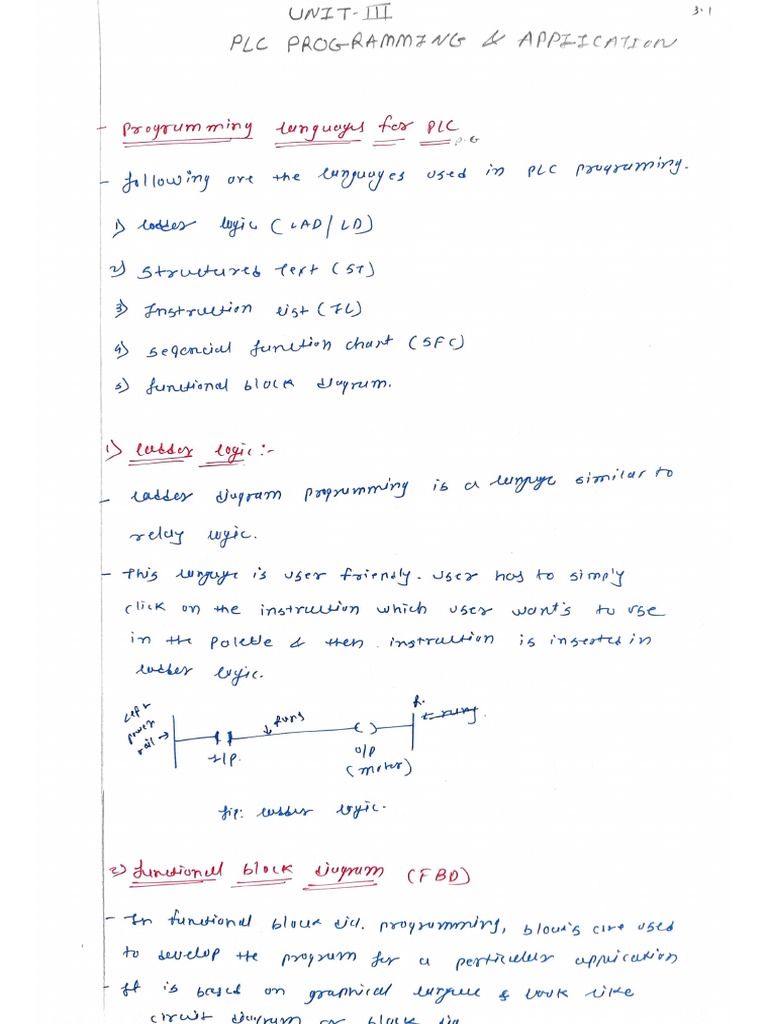 UNIT-III
3.1
PLC PROGRAMMING & APPLICATION
- Programming languages for PLC
- following are the languages used in PLC programing.
1) Ladder logic (LAD/LD)
2) Structured Text (ST)
3) Instruction list (IL)
4) seqencial function chart (SFC)
5) functional block diagram.
1) Ladder logic:-
- Ladder diagram programming is a language similar to
relay logic.
- This language is user friendly. user has to simply
click on the instruction which user want's to use
in the Palette & then instruction is inserted in
ladder logic.
Left
power
rail
I/P.
O/P
(motor)
R.
fig: ladder logic.
2) functional block diagram (FBD)
- In functional block dia. programming, blocks are used
to develop the program for a particular application
- It is based on graphical language & look like
circuit diagram or block dia